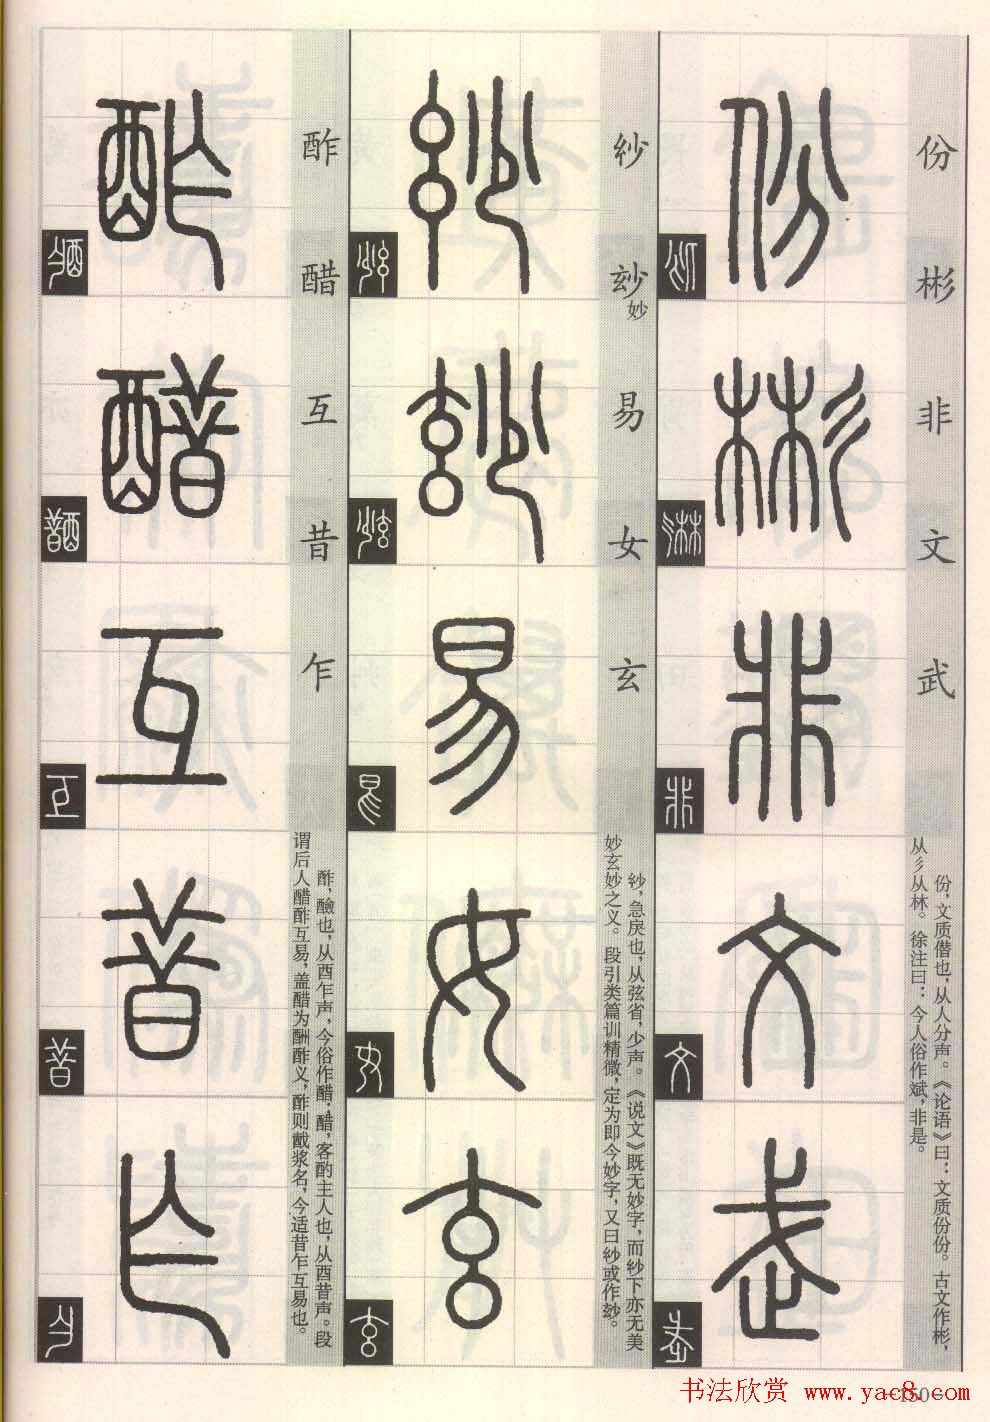 份 彬 非 文 武
份,文质僃也,从人分声。《论语》曰:文质份份。古文作彬,
从彡从林。徐注曰:今人俗作斌,非是。
紗 玅妙 易 女 玄
紗,急戾也,从弦省,少声。《说文》既无妙字,而紗下亦无美
妙玄妙之义。段引类篇训精微,定为即今妙字,又曰紗或作玅。
酢 醋 互 昔 乍
酢,醶也,从酉乍声,今俗作醋;醋,客酌主人也,从酉昔声。段
谓后人醋酢互易,盖醋为酬酢义,酢则酨浆名,今适昔乍互易也。
150
书法欣赏 www.yac8.com